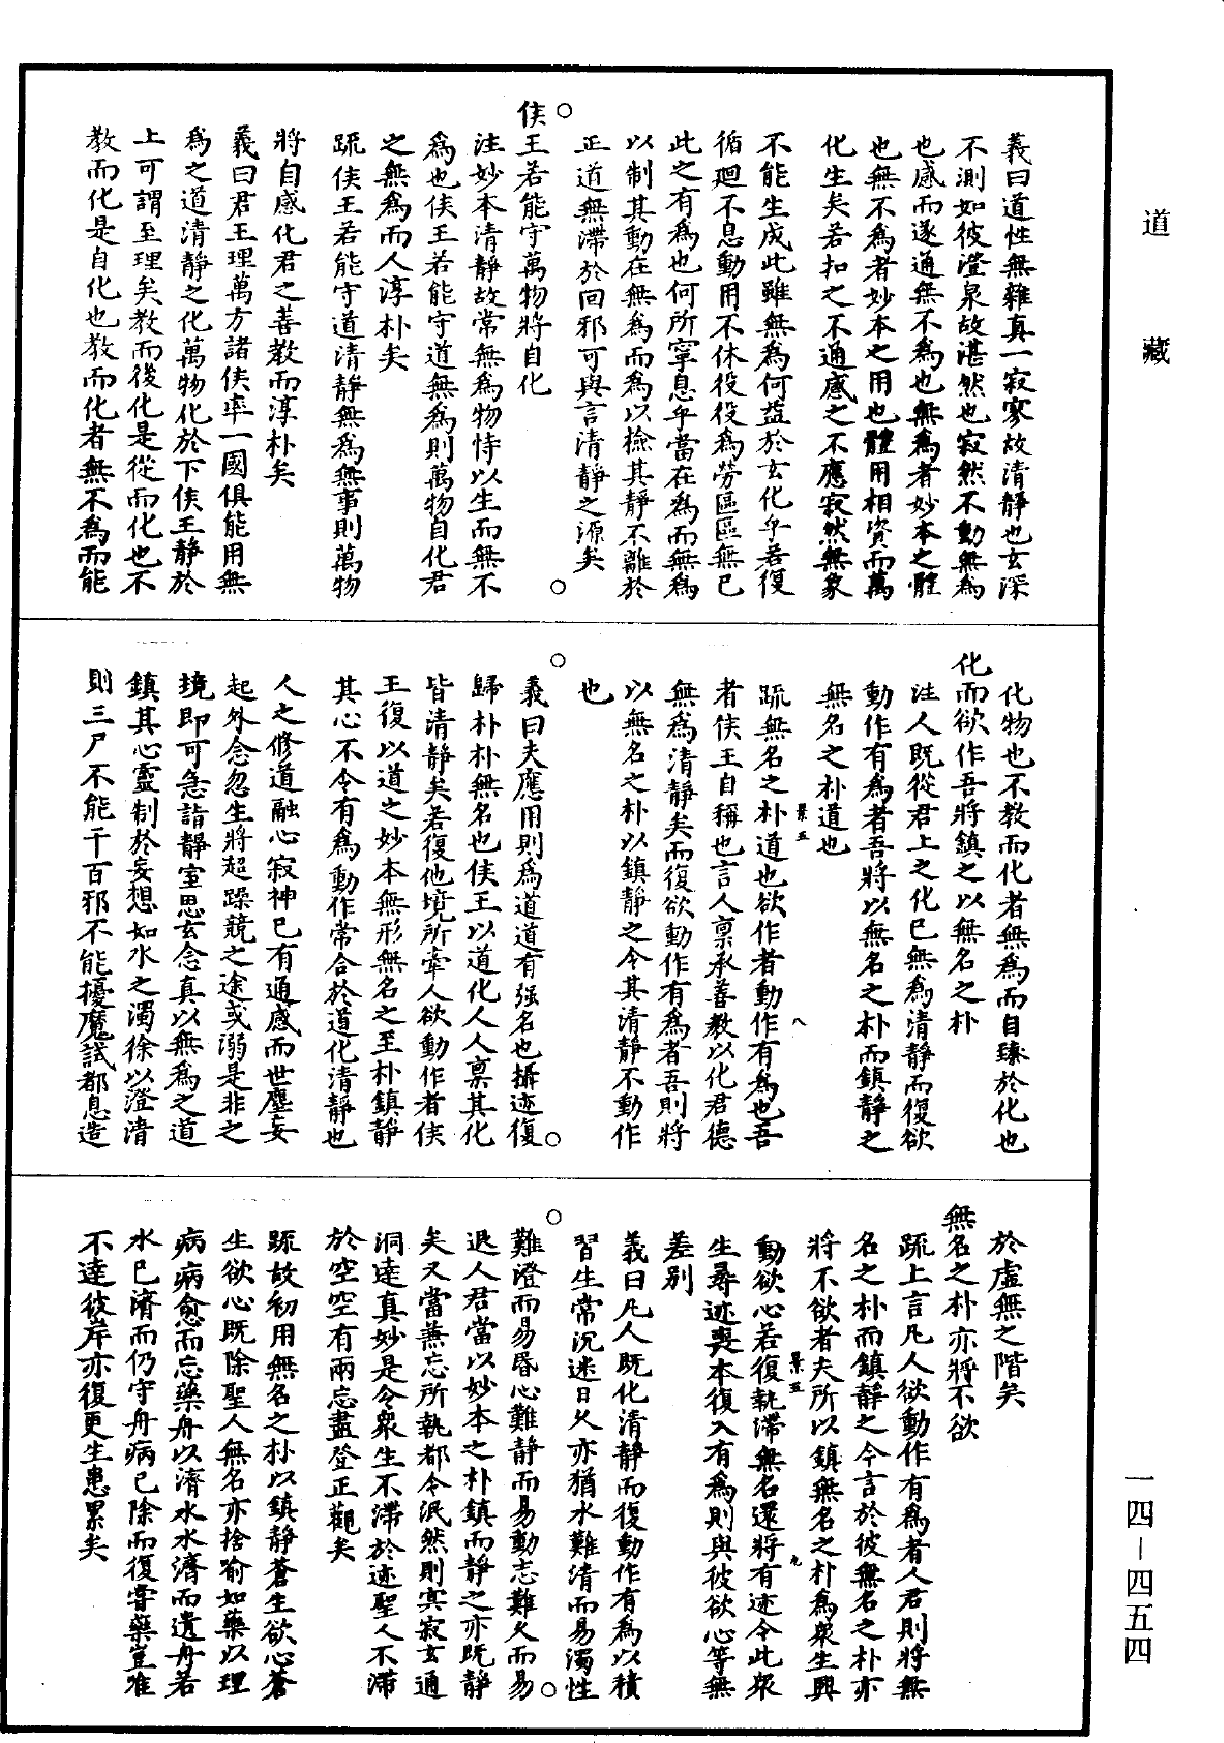 道藏
義曰道性無雜真一寂寥故清靜也玄深
不測如彼澄泉故湛然也寂然不動無為
也感而遂通無不為也無為者妙本之體
也無不為者妙本之用也體用相資而萬
化生矣若扣之不通感之不應寂然無象
不能生成此雖無為何益於玄化乎若復
循迴不息動用不休役役為勞區區無已
此之有為也何所寧息乎當在為而無為
以制其動在無為而為以撿其靜不離於
正道無滯於回邪可與言清靜之源矣
○侯王若能守萬物將自化○
注妙本清靜故常無為物恃以生而無不
為也侯王若能守道無為則萬物自化君
之無為而人淳朴矣
疏侯王若能守道清靜無為無事則萬物
將自感化君之善教而淳朴矣
義曰君王理萬方諸侯率一國俱能用無
為之道清靜之化萬物化於下侯王靜於
上可謂至理矣教而後化是從而化也不
教而化是自化也教而化者無不為而能
化物也不教而化者無為而自臻於化也
化而欲作吾將鎮之以無名之朴
注人既從君上之化已無為清靜而復欲
動作有為者吾將以無名之朴而鎮靜之
無名之朴道也
景五 八
疏無名之朴道也欲作者動作有為也吾
者侯王自稱也言人稟承善教以化君德
無為清靜矣而復欲動作有為者吾則將
以無名之朴以鎮靜之令其清靜不動作
也
○義曰夫應用則為道道有强名也攝迹復○
歸朴朴無名也侯王以道化人人稟其化
皆清靜矣若復他境所牽人欲動作者侯
王復以道之妙本無形無名之至朴鎮靜
其心不令有為動作常合於道化清靜也
人之修道融心寂神已有通感而世塵妄
起外念忽生將超躁競之途或溺是非之
境即可急詣靜室思玄念真以無為之道
鎮其心靈制於妄想如水之濁徐以澄清
則三尸不能千百邪不能擾魔試都息造
於虛無之階矣
無名之朴亦將不欲
疏上言凡人欲動作有為者人君則將無
名之朴而鎮靜之今言於彼無名之朴亦
將不欲者夫所以鎮無名之朴為眾生興
景五 九
動欲心若復執滯無名還將有迹令此眾
生尋迹喪本復入有為則與彼欲心等無
差別
義曰凡人既化清靜而復動作有為以積
習生常沉迷日久亦猶水難清而易濁性
○難澄而易昏心難靜而易動志難久而易○
退人君當以妙本之朴鎮而靜之亦既靜
矣又當兼忘所執都令泯然則冥寂玄通
洞達真妙是令眾生不滯於迹聖人不滯
於空空有兩忘盡登正觀矣
疏故初用無名之朴以鎮靜蒼生欲心蒼
生欲心既除聖人無名亦捨喻如藥以理
病病愈而忘藥舟以濟水水濟而遺舟若
水已濟而仍守舟病已除而復甞藥豈唯
不達彼岸亦復更生患累矣
一四－四五四